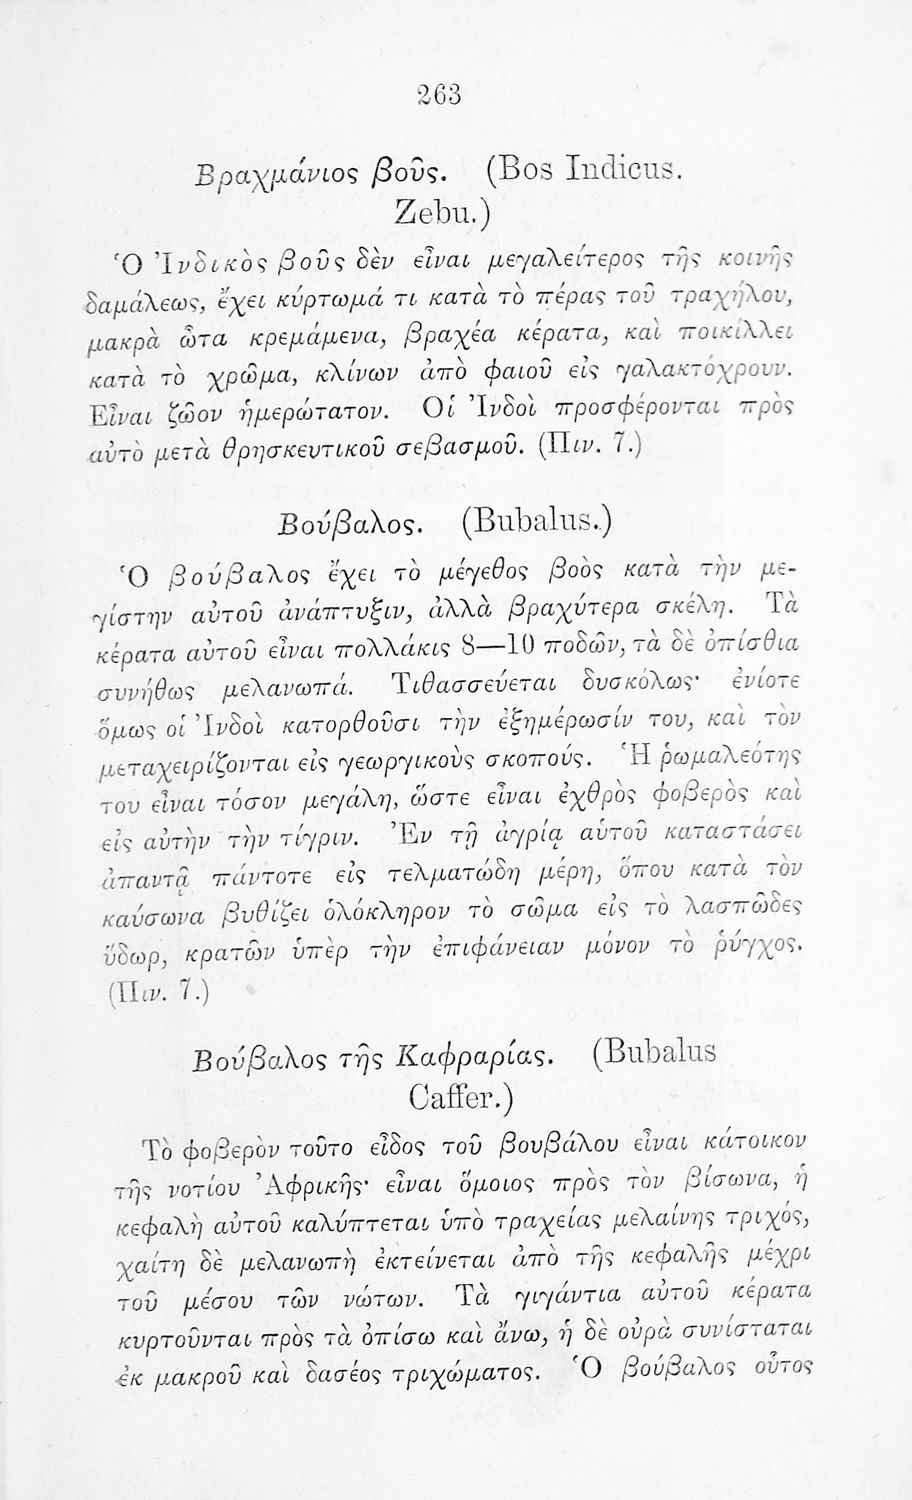 263
Βραχμάνιος βοῦς. (Bos Indicus.
Zebu.)
Ὁ Ἰνδικὸς βοῦς δὲν εἶναι μεγαλείτερος τῆς κοινῆς
δαμάλεως, ἔχει κύρτωμά τι κατὰ τὸ πέρας τοῦ τραχήλου,
μακρὰ ὦτα κρεμάμενα, βραχέα κέρατα, καὶ ποικίλλει
κατὰ τὸ χρῶμα, κλίνων ἀπὸ φαιοῦ εἰς γαλακτόχρουν.
Εἶναι ζῶον ἡμερώτατον. Οἱ Ἰνδοὶ προσφέρονται πρὸς
αὐτὸ μετὰ θρησκευτικοῦ σεβασμοῦ. (Πιν. 7.)
Βούβαλος. (Bubalus.)
Ὁ βούβαλος ἔχει τὸ μέγεθος βοὸς κατὰ τὴν με-
γίστην αὐτοῦ ἀνάπτυξιν, ἀλλὰ βραχύτερα σκέλη. Τὰ
κέρατα αὐτοῦ εἶναι πολλάκις 8—10 ποδῶν, τὰ δὲ ὀπίσθια
συνήθως μελανωπά. Τιθασσεύεται δυσκόλως· ἐνίοτε
ὅμως οἱ Ἰνδοὶ κατορθοῦσι τὴν ἐξημέρωσίν του, καὶ τὸν
μεταχειρίζονται εἰς γεωργικοὺς σκοπούς. Ἡ ῥωμαλεότης
του εἶναι τόσον μεγάλη, ὥστε εἶναι ἐχθρὸς φοβερὸς καὶ
εἰς αὐτὴν τὴν τίγριν. Ἐν τῇ ἀγρίᾳ αὑτοῦ καταστάσει
ἀπαντᾷ πάντοτε εἰς τελματώδη μέρη, ὅπου κατὰ τὸν
καύσωνα βυθίζει ὁλόκληρον τὸ σῶμα εἰς τὸ λασπῶδες
ὕδωρ, κρατῶν ὑπὲρ τὴν ἐπιφάνειαν μόνον τὸ ῥύγχος.
(Πιν. 7.)
Βούβαλος τῆς Καφραρίας. (Bubalus
Caffer.)
Τὸ φοβερὸν τοῦτο εἶδος τοῦ βουβάλου εἶναι κάτοικον
τῆς νοτίου Ἀφρικῆς· εἶναι ὅμοιος πρὸς τὸν βίσωνα, ἡ
κεφαλὴ αὐτοῦ καλύπτεται ὑπὸ τραχείας μελαίνης τριχός,
χαίτη δὲ μελανωπὴ ἐκτείνεται ἀπὸ τῆς κεφαλῆς μέχρι
τοῦ μέσου τῶν νώτων. Τὰ γιγάντια αὐτοῦ κέρατα
κυρτοῦνται πρὸς τὰ ὀπίσω καὶ ἄνω, ἡ δὲ οὐρὰ συνίσταται
ἐκ μακροῦ καὶ δασέος τριχώματος. Ὁ βούβαλος οὗτος